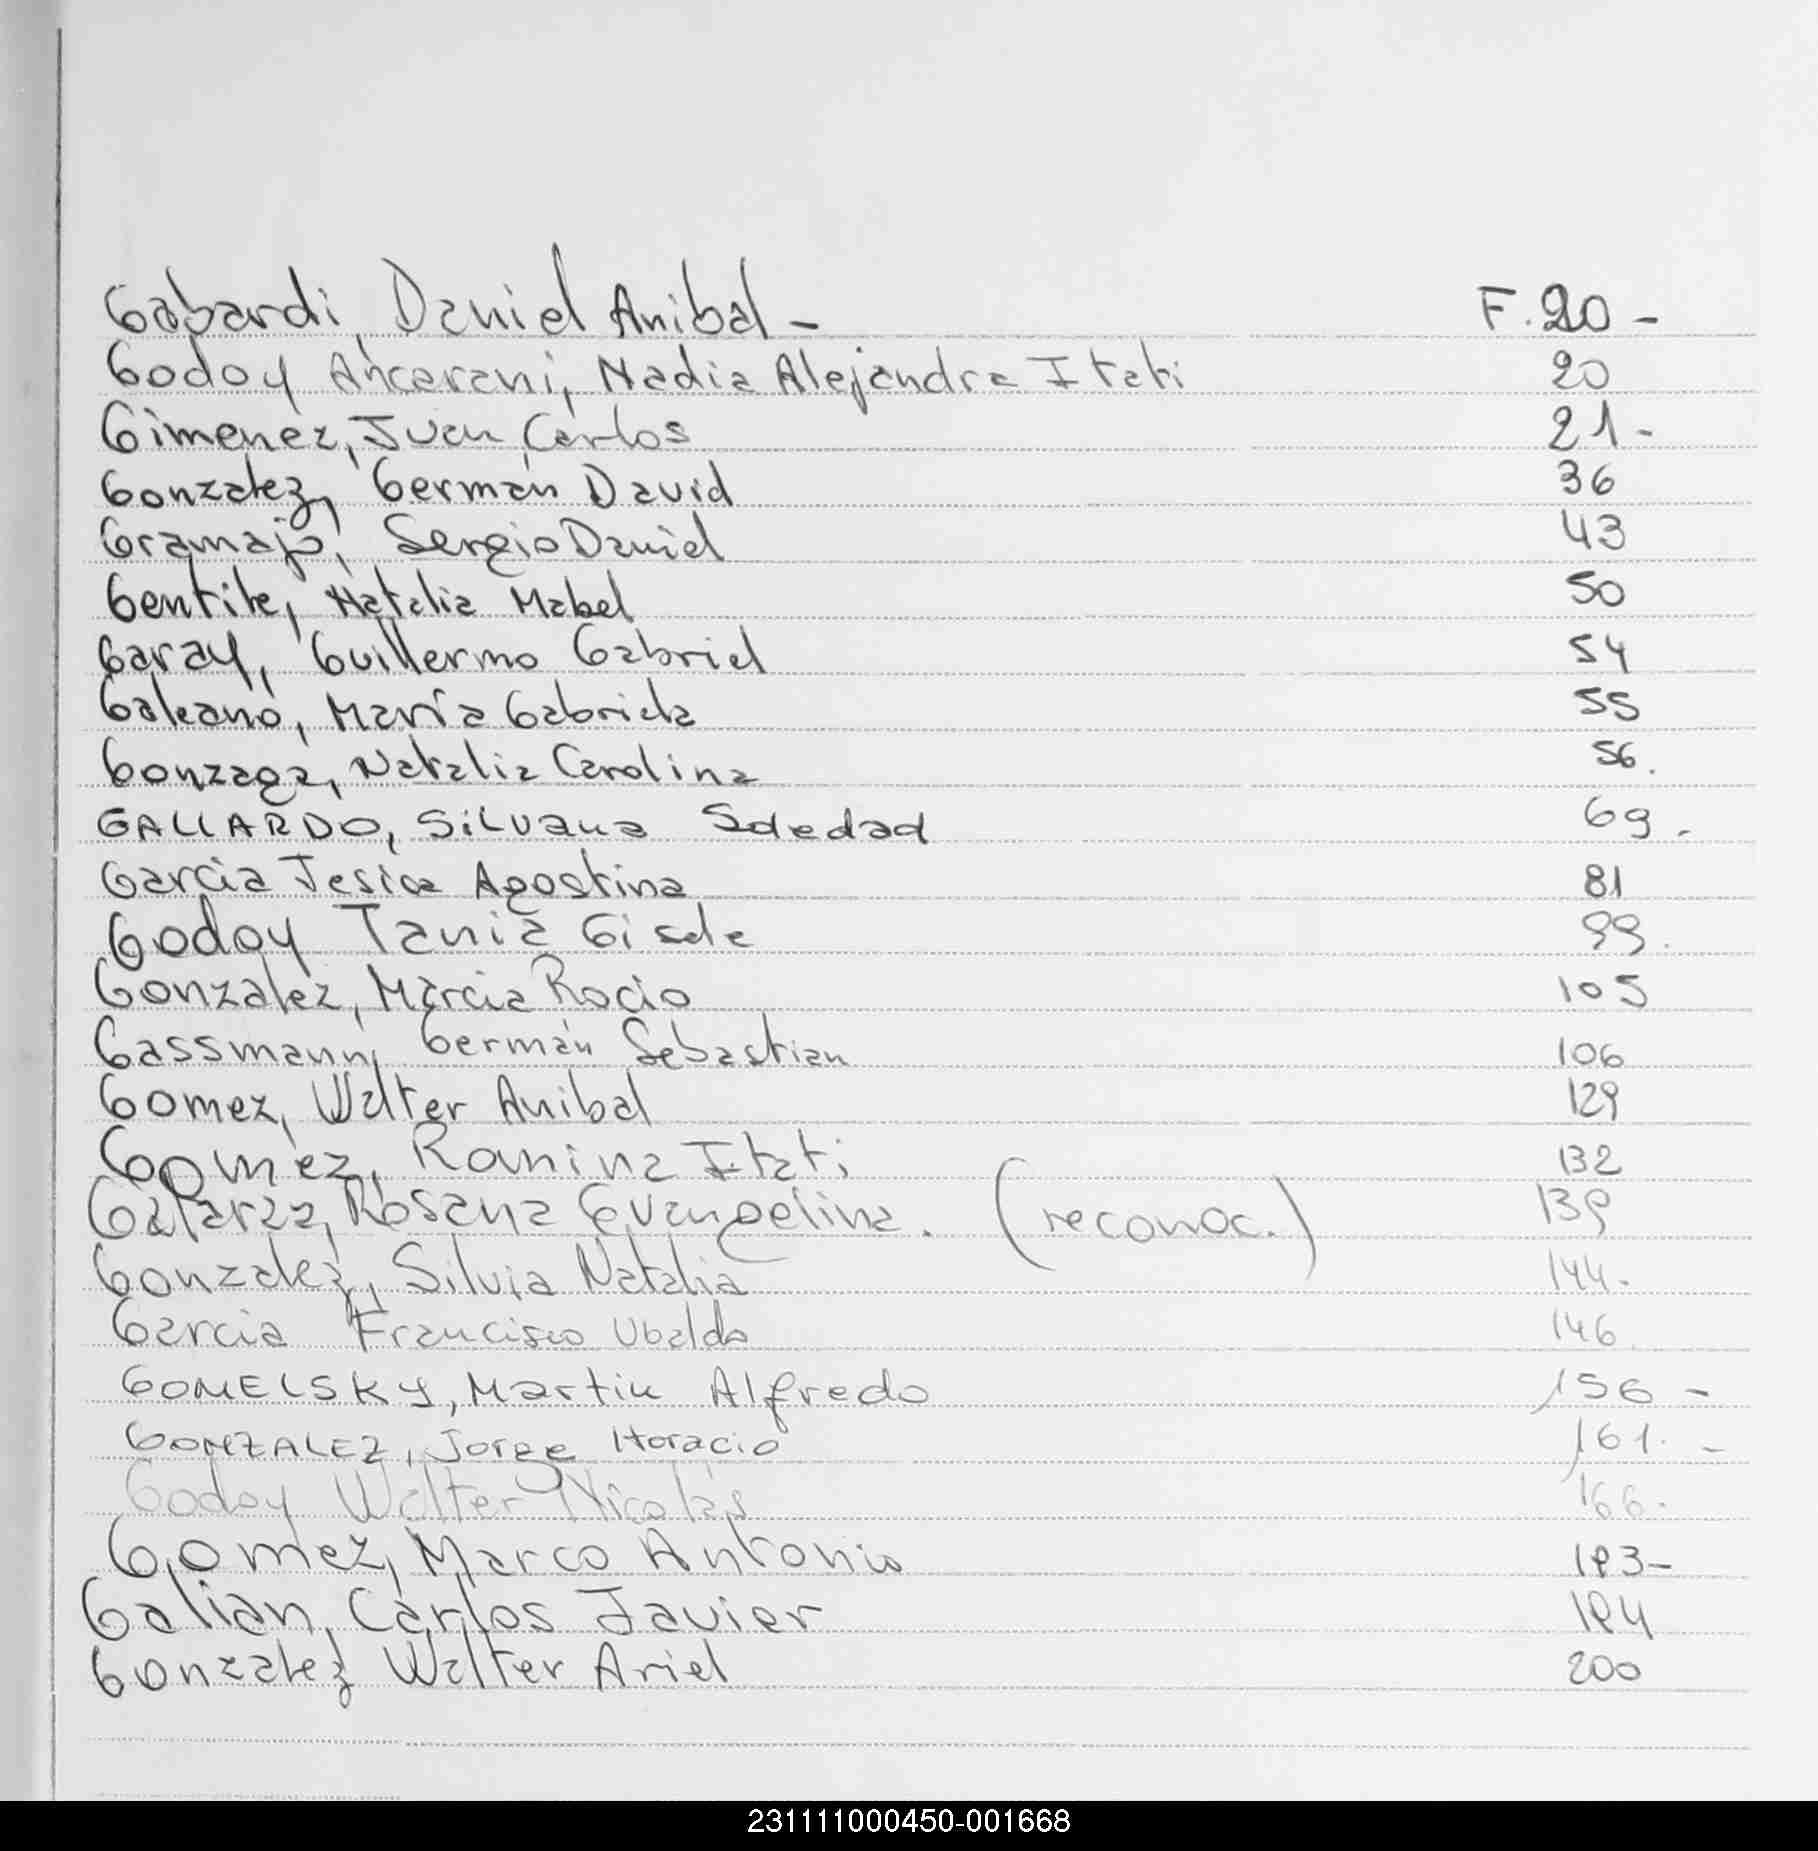 Gabardi, Daniel Anibal - F. 20 -
Godoy Ancarani, Nadia Alejandra Itati 20
Gimenez, Juan Carlos 21 -
Gonzalez, Germán David 36
Gramajo, Sergio Daniel 43
Gentile, Natalia Mabel 50
Garay, Guillermo Gabriel 54
Galeano, María Gabriela 55
Gonzaga, Natalia Carolina 56.
GALLARDO, Silvana Soledad 69.-
Garcia Jesica Agostina 81
Godoy Tania Gisele 99.
Gonzalez, Marcia Rocio 105
Gassmann, Germán Sebastian 106
Gomez, Walter Anibal 129
Gomez, Romina Itati 132
Galarza, Rosana Evangelina. (reconoc.) 139
Gonzalez, Silvia Natalia 144.
Garcia Francisco Ubaldo 146
GOMELSKY, Martin Alfredo 156 -
GONZALEZ, Jorge Horacio 161. -
Godoy Walter Nicolás 166.
Gomez, Marco Antonio 193-
Galian, Carlos Javier 194
Gonzalez Walter Ariel 200
231111000450-001668